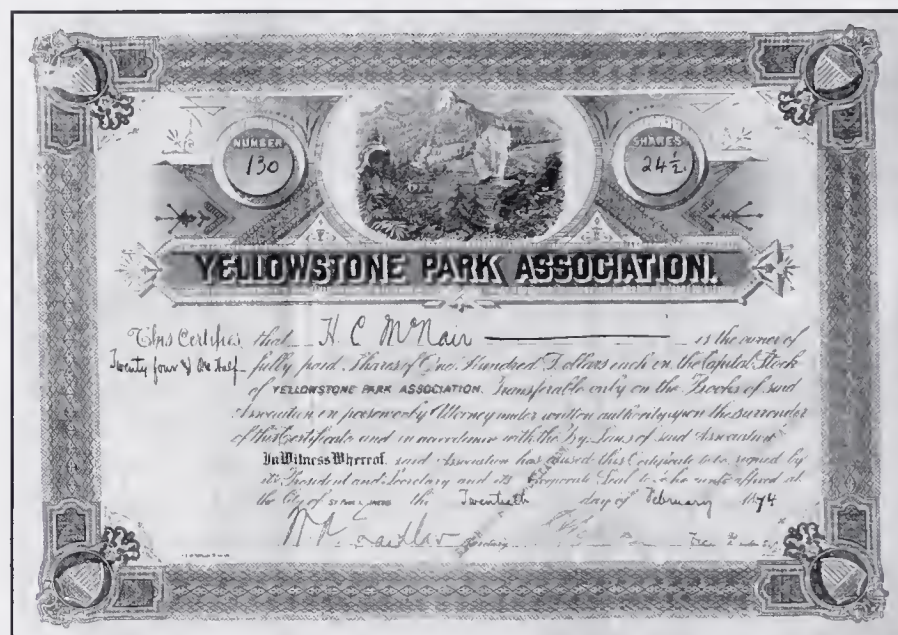 NUMBER
130
SHARES
24 1/2
YELLOWSTONE PARK ASSOCIATION.
This Certifies that H. C. McNair is the owner of
Twenty four & One Half fully paid Shares of One Hundred Dollars each on the Capital Stock
of YELLOWSTONE PARK ASSOCIATION. Transferable only on the Books of said
Association in person or by Attorney under written authority upon the surrender
of this Certificate and in accordance with the By Laws of said Association
In Witness Whereof, said Association has caused this Certificate to be signed by
its President and Secretary and its Corporate Seal to be hereunto affixed at
the City of the Twentieth day of February